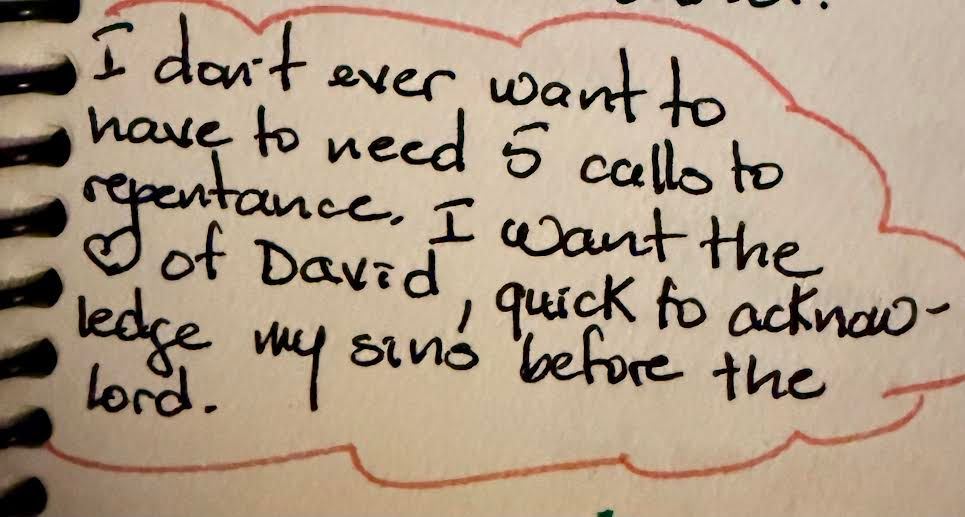 I don't ever want to
have to need 5 calls to
repentance. I want the
♡ of David, quick to acknow-
ledge my sins before the
Lord.